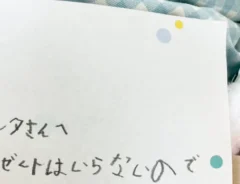 ンタさんへ
ゼントはいらないので